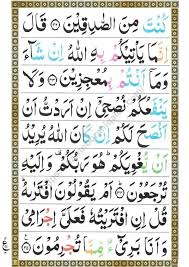 كُنْتَ مِنَ الصّٰدِقِيْنَ ۝ قَالَ
اِنَّمَا يَاْتِيْكُمْ بِهِ اللّٰهُ اِنْ شَآءَ
وَمَآ اَنْتُمْ بِمُعْجِزِيْنَ ۝ وَلَا
يَنْفَعُكُمْ نُصْحِيْٓ اِنْ اَرَدْتُّ اَنْ
اَنْصَحَ لَكُمْ اِنْ كَانَ اللّٰهُ يُرِيْدُ
اَنْ يُّغْوِيَكُمْ ؕ هُوَ رَبُّكُمْ ۫ وَاِلَيْهِ
تُرْجَعُوْنَ ۝ اَمْ يَقُوْلُوْنَ افْتَرٰىهُ ؕ
قُلْ اِنِ افْتَرَيْتُهٗ فَعَلَيَّ اِجْرَامِيْ
وَاَنَا بَرِيْٓءٌ مِّمَّا تُجْرِمُوْنَ ۝